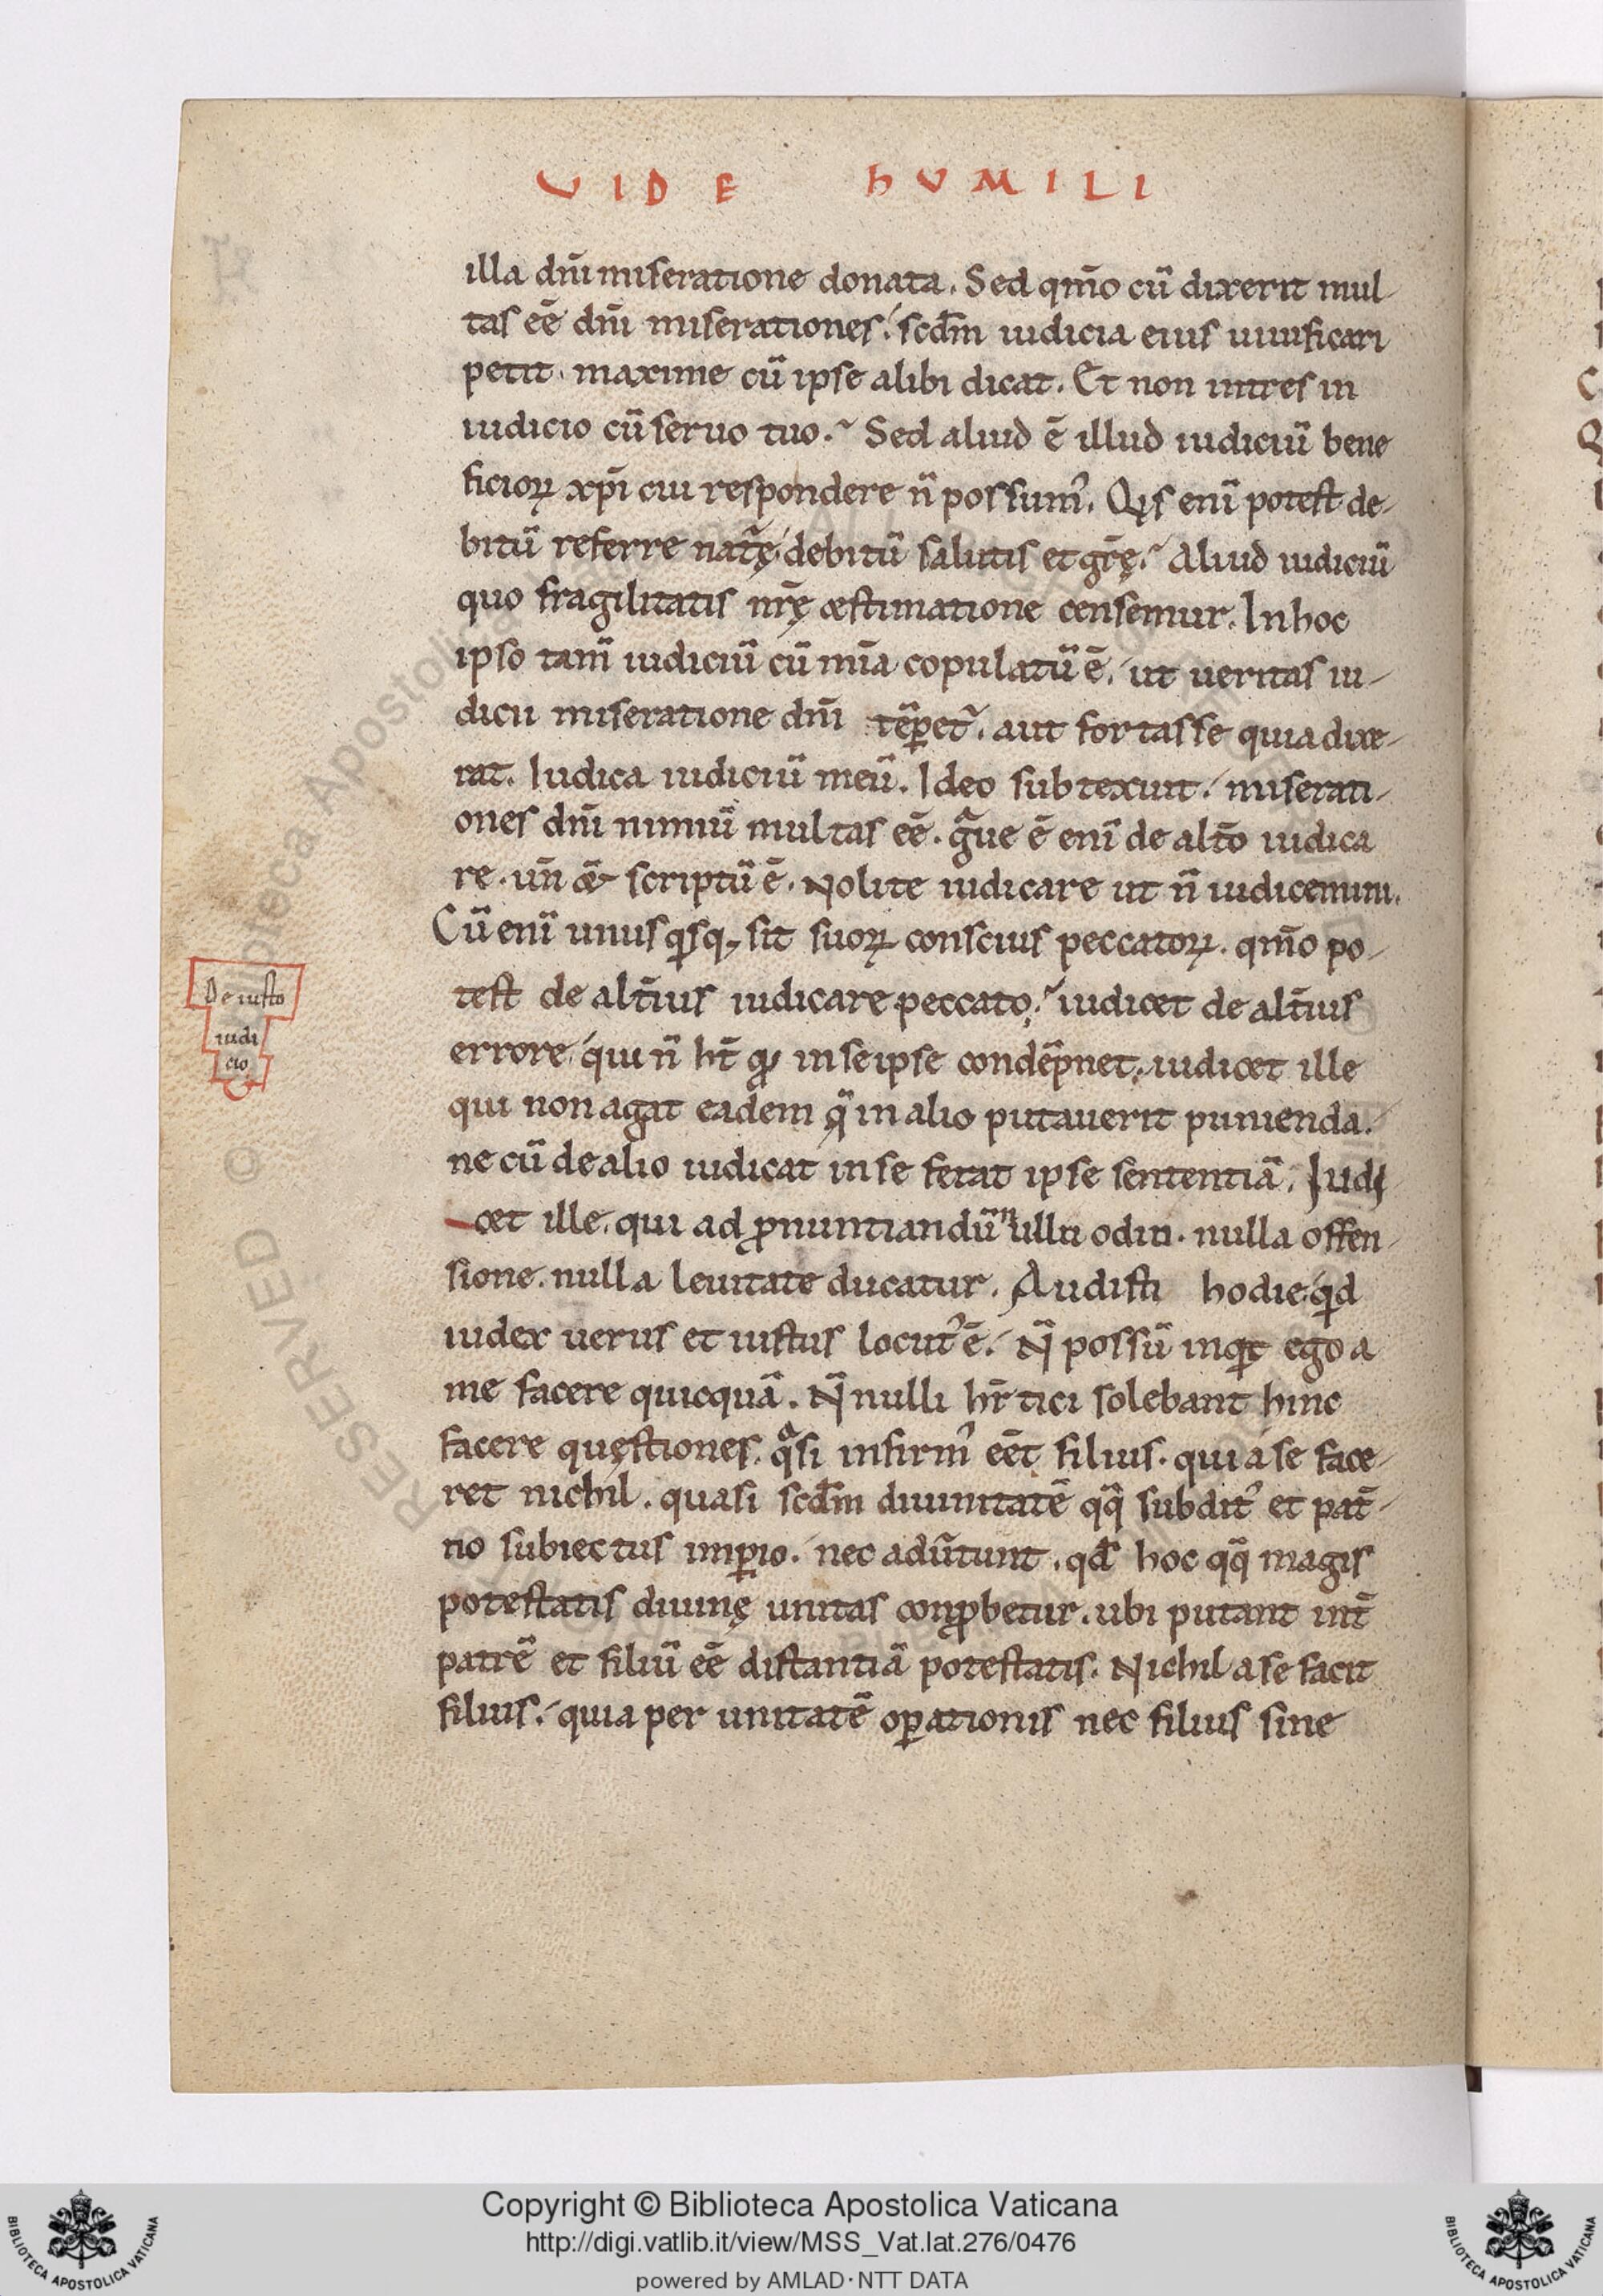 VIDE HVMILI
illa dñi miseratione donata. Sed qm̄o cū dixerit mul-
tas eē dñi miserationes. scd̄m iudicia eius uiuificari
petit. maxime cū ipse alibi dicat. Et non intres in
iudicio cū seruo tuo. Sed aliud ē illud iudiciū bene
ficioꝝ xp̄i cui respondere n̄ possumꝰ. Qͥs enī potest de-
bitū referre natę debitū salutis et gr̄ę. Aliud iudiciū
quo fragilitatis nr̄ę æstimatione censemur. In hoc
ipso tam̄ iudiciū cū mīa copulatū ē. ut ueritas iu-
dicii miseratione dñi tēꝑet᷑. aut fortasse quia dixe-
rat. Iudica iudiciū meū. Ideo subtexuit. miserati-
ones dñi nimiū multas eē. gͣue ē enī de alt̄o iudica
re. un̄ & scriptū ē. Nolite iudicare ut n̄ iudicemini.
Cū enī unus qͥsq; sit suoꝝ conscius peccatoꝝ. qm̄o po-
De iusto
iudi
cio
test de alt̄ius iudicare peccato. iudicet de alt̄ius
errore. qui n̄ ht̄ qđ in se ipse condēpnet. iudicet ille
qui non agat eadem q̄ in alio putauerit punienda.
ne cū de alio iudicat in se ferat ipse sententiā. Iudi-
cet ille. qui ad ꝓnuntiandū n ullii odiii. nulla offen-
sione. nulla leuitate ducatur. Audisti hodie qͥd
iudex uerus et iustus locutꝰ ē. Ñ possū inqͥt ego a
me facere quicquā. Ñ nulli hr̄tici solebant hinc
facere quęstiones. qͣsi infirmꝰ eēt filius. qui a se face-
ret nichil. quasi scd̄m diuinitatē qq̄ subditꝰ et pat̄-
no subiectus imꝑio. nec adu̅tunt. qđ hoc qq̄ magis
potestatis diuinę unitas conꝓbetur. ubi putant int̄
patrē et filiū eē distantiā potestatis. Nichil a se facit
filius. quia per unitatē oꝑationis nec filius sine
Copyright © Biblioteca Apostolica Vaticana
http://digi.vatlib.it/view/MSS_Vat.lat.276/0476
powered by AMLAD·NTT DATA
BIBLIOTECA APOSTOLICA VATICANA
BIBLIOTECA APOSTOLICA VATICANA